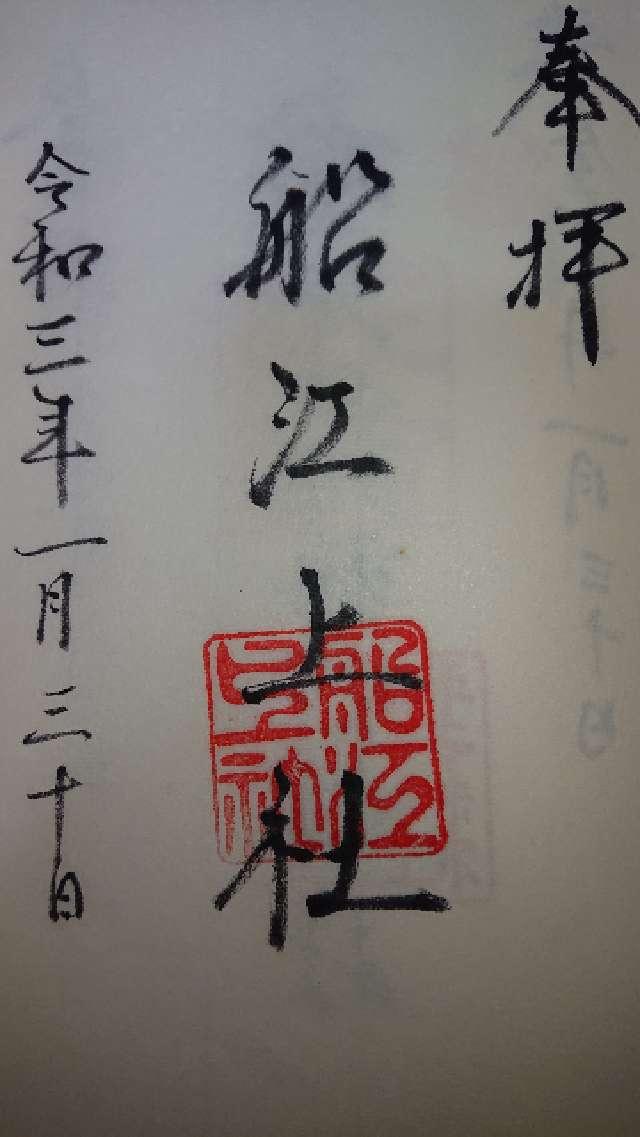 奉拝
船江上社
船江上社
令和三年一月三十日